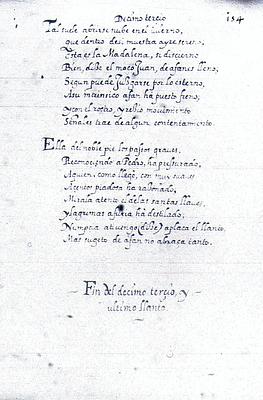 Decimo tercio 154
Tal suele abrirse nube en el iuierno,
que dentro de si muestra ayre sereno,
Esta es la Madalena, si dicierno
Bien, dixe el moço Juan, de afanes lleno,
Segun puede juzgarse por lo esterno,
A su intrinsico afan ha puesto freno,
y con el rostro, y movimiento
Señales trae de algun contentamiento.
Ella del noble pie los pasos graues,
Reconociendo a Pedro, ha presurado,
Aquien, como llegó, con muy suaves
Acentos piadosa ha
Mirala atento el de las santas llaues,
y lagrimas afuera ha destilado,
(dixe) aplaca el llanto,
Mas sugeto de afan no abraça tanto.
Fin del decimo tercio, y
ultimo llanto.